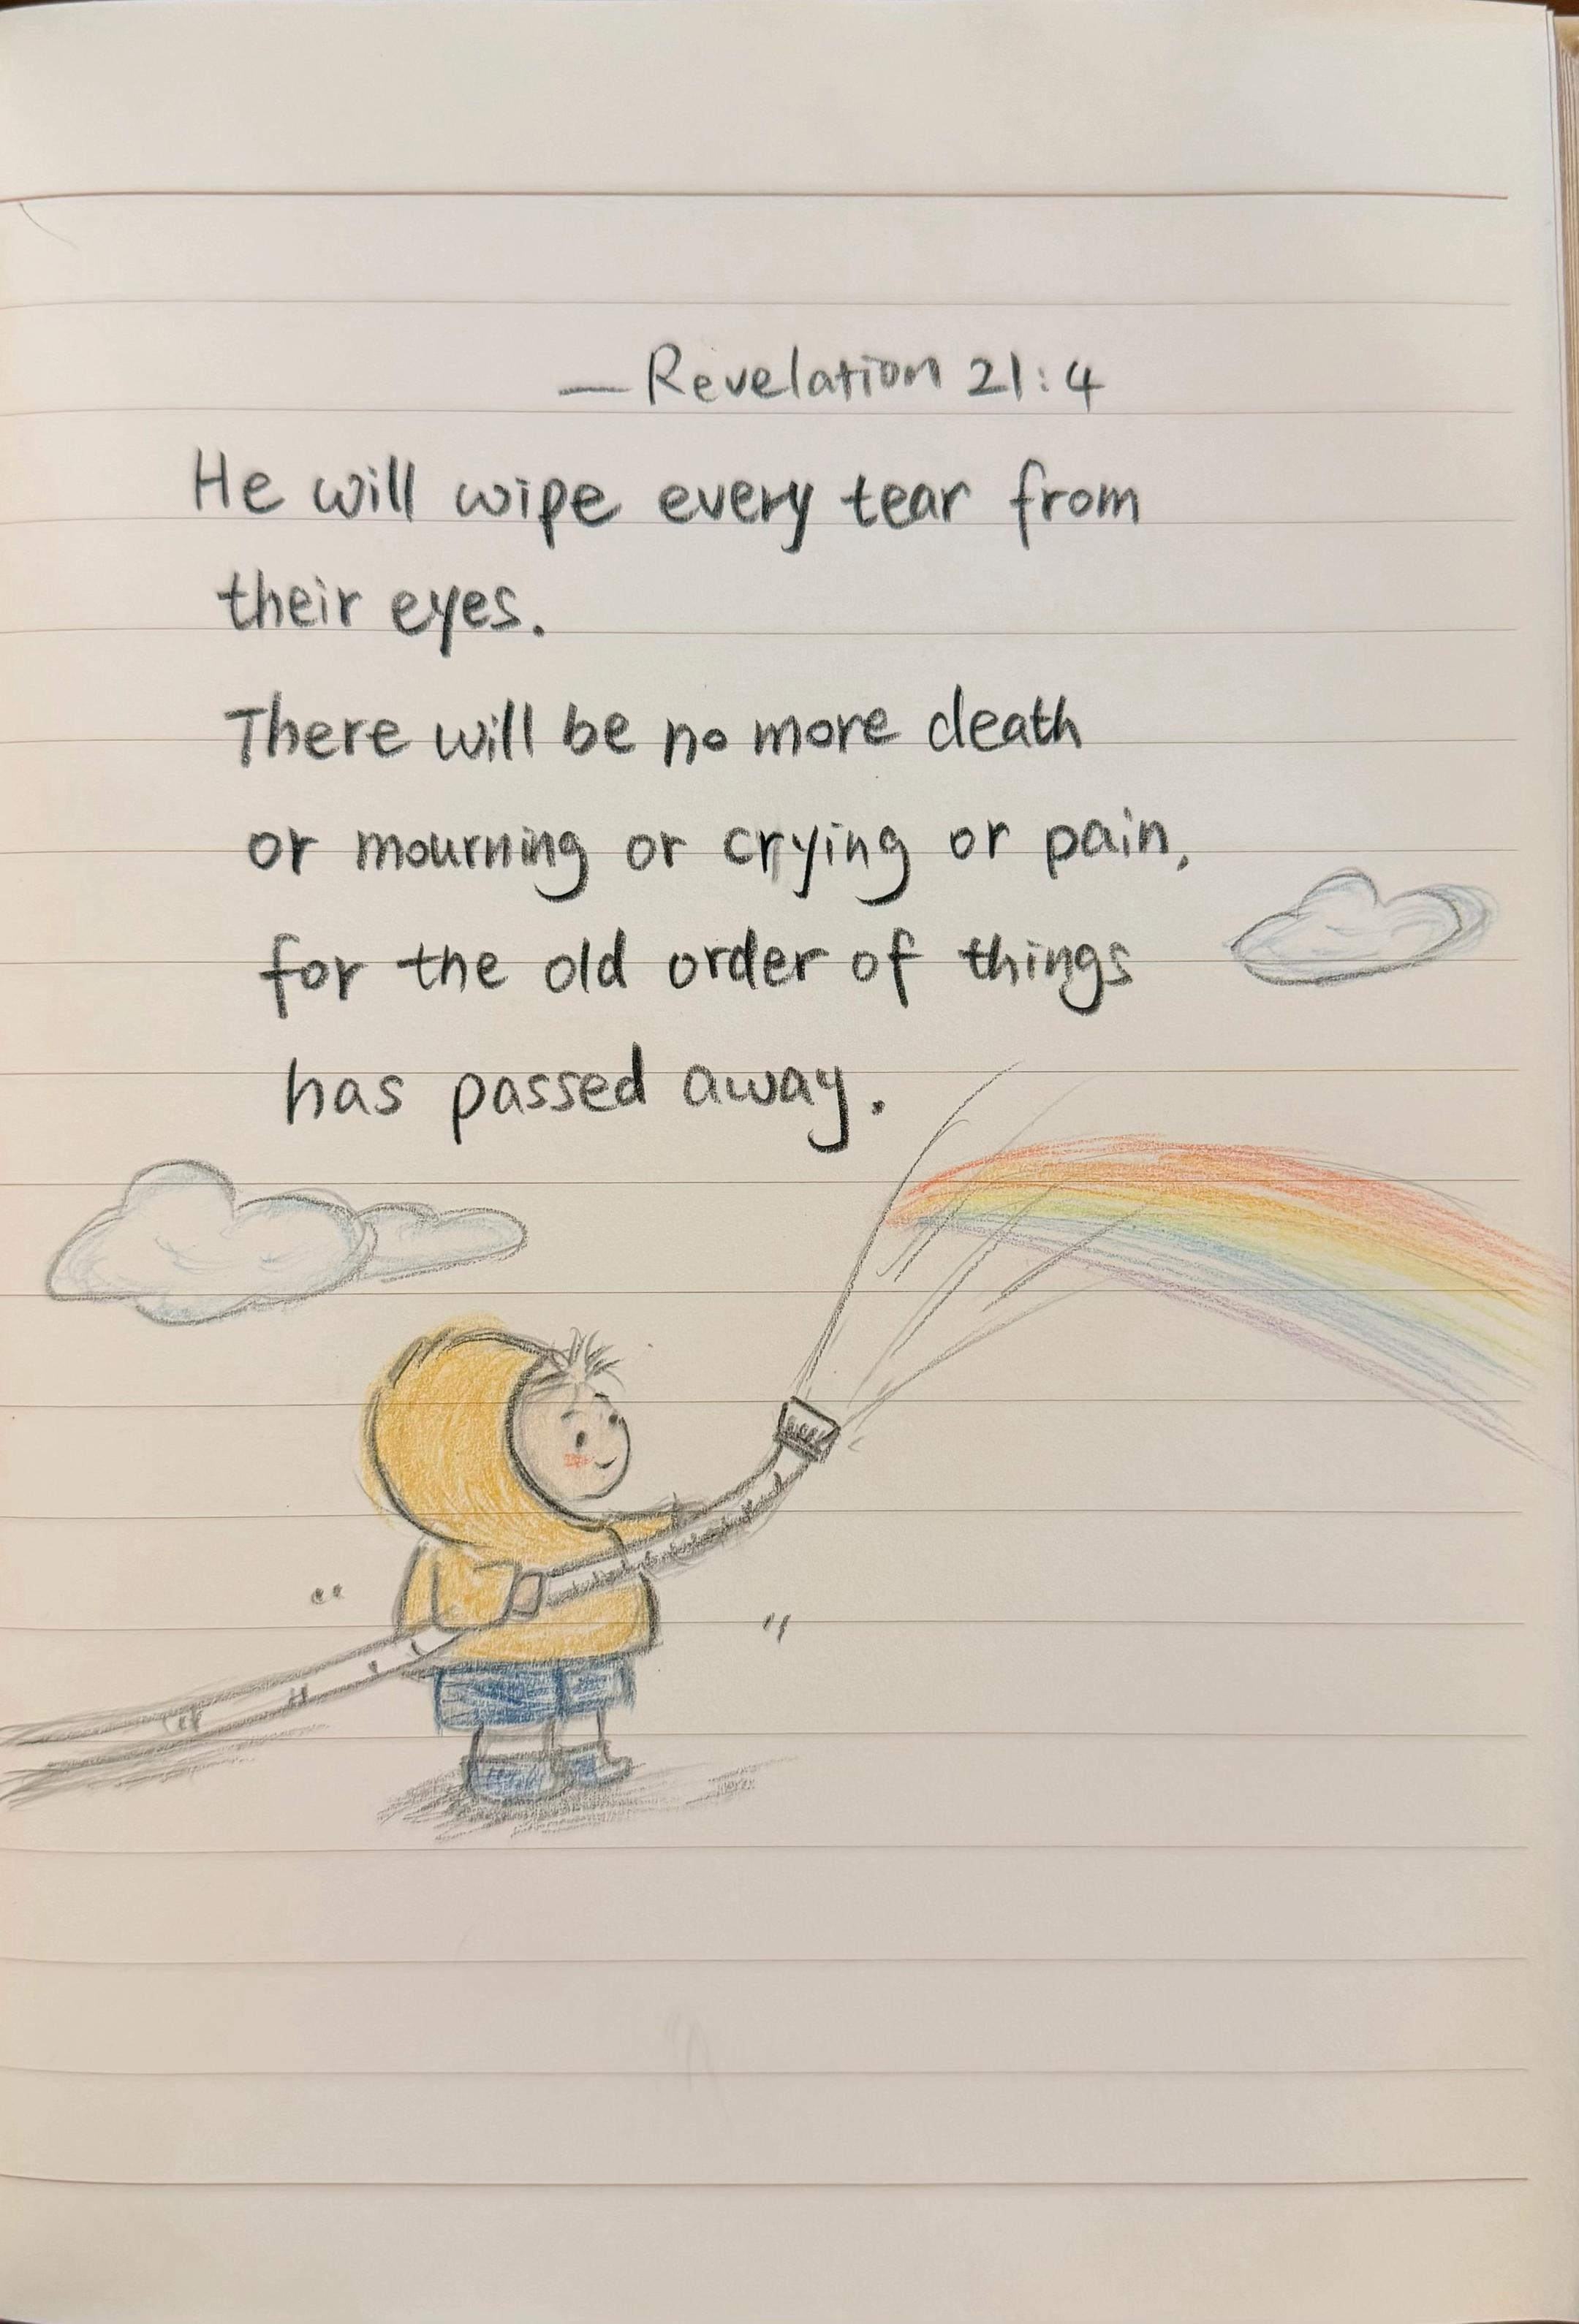 — Revelation 21:4
He will wipe every tear from
their eyes.
There will be no more death
or mourning or crying or pain,
for the old order of things
has passed away.